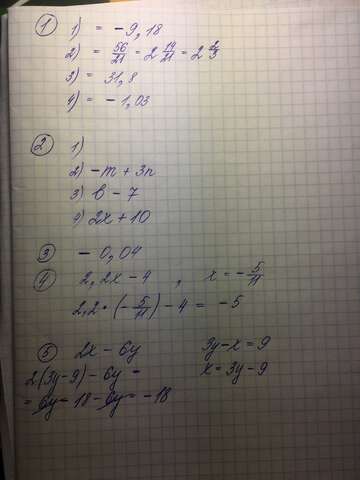 1 1) = -9,18
2) = 56/21 = 2 14/21 = 2 2/3
3) = 31,8
4) = -1,03
2 1)
2) -m + 3n
3) b - 7
4) 2x + 10
3 -0,04
4 2,2x - 4 , x = -5/11
2,2 · (-5/11) - 4 = -5
5 2x - 6y 3y - x = 9
2(3y-9) - 6y = x = 3y - 9
= 6y - 18 - 6y = -18